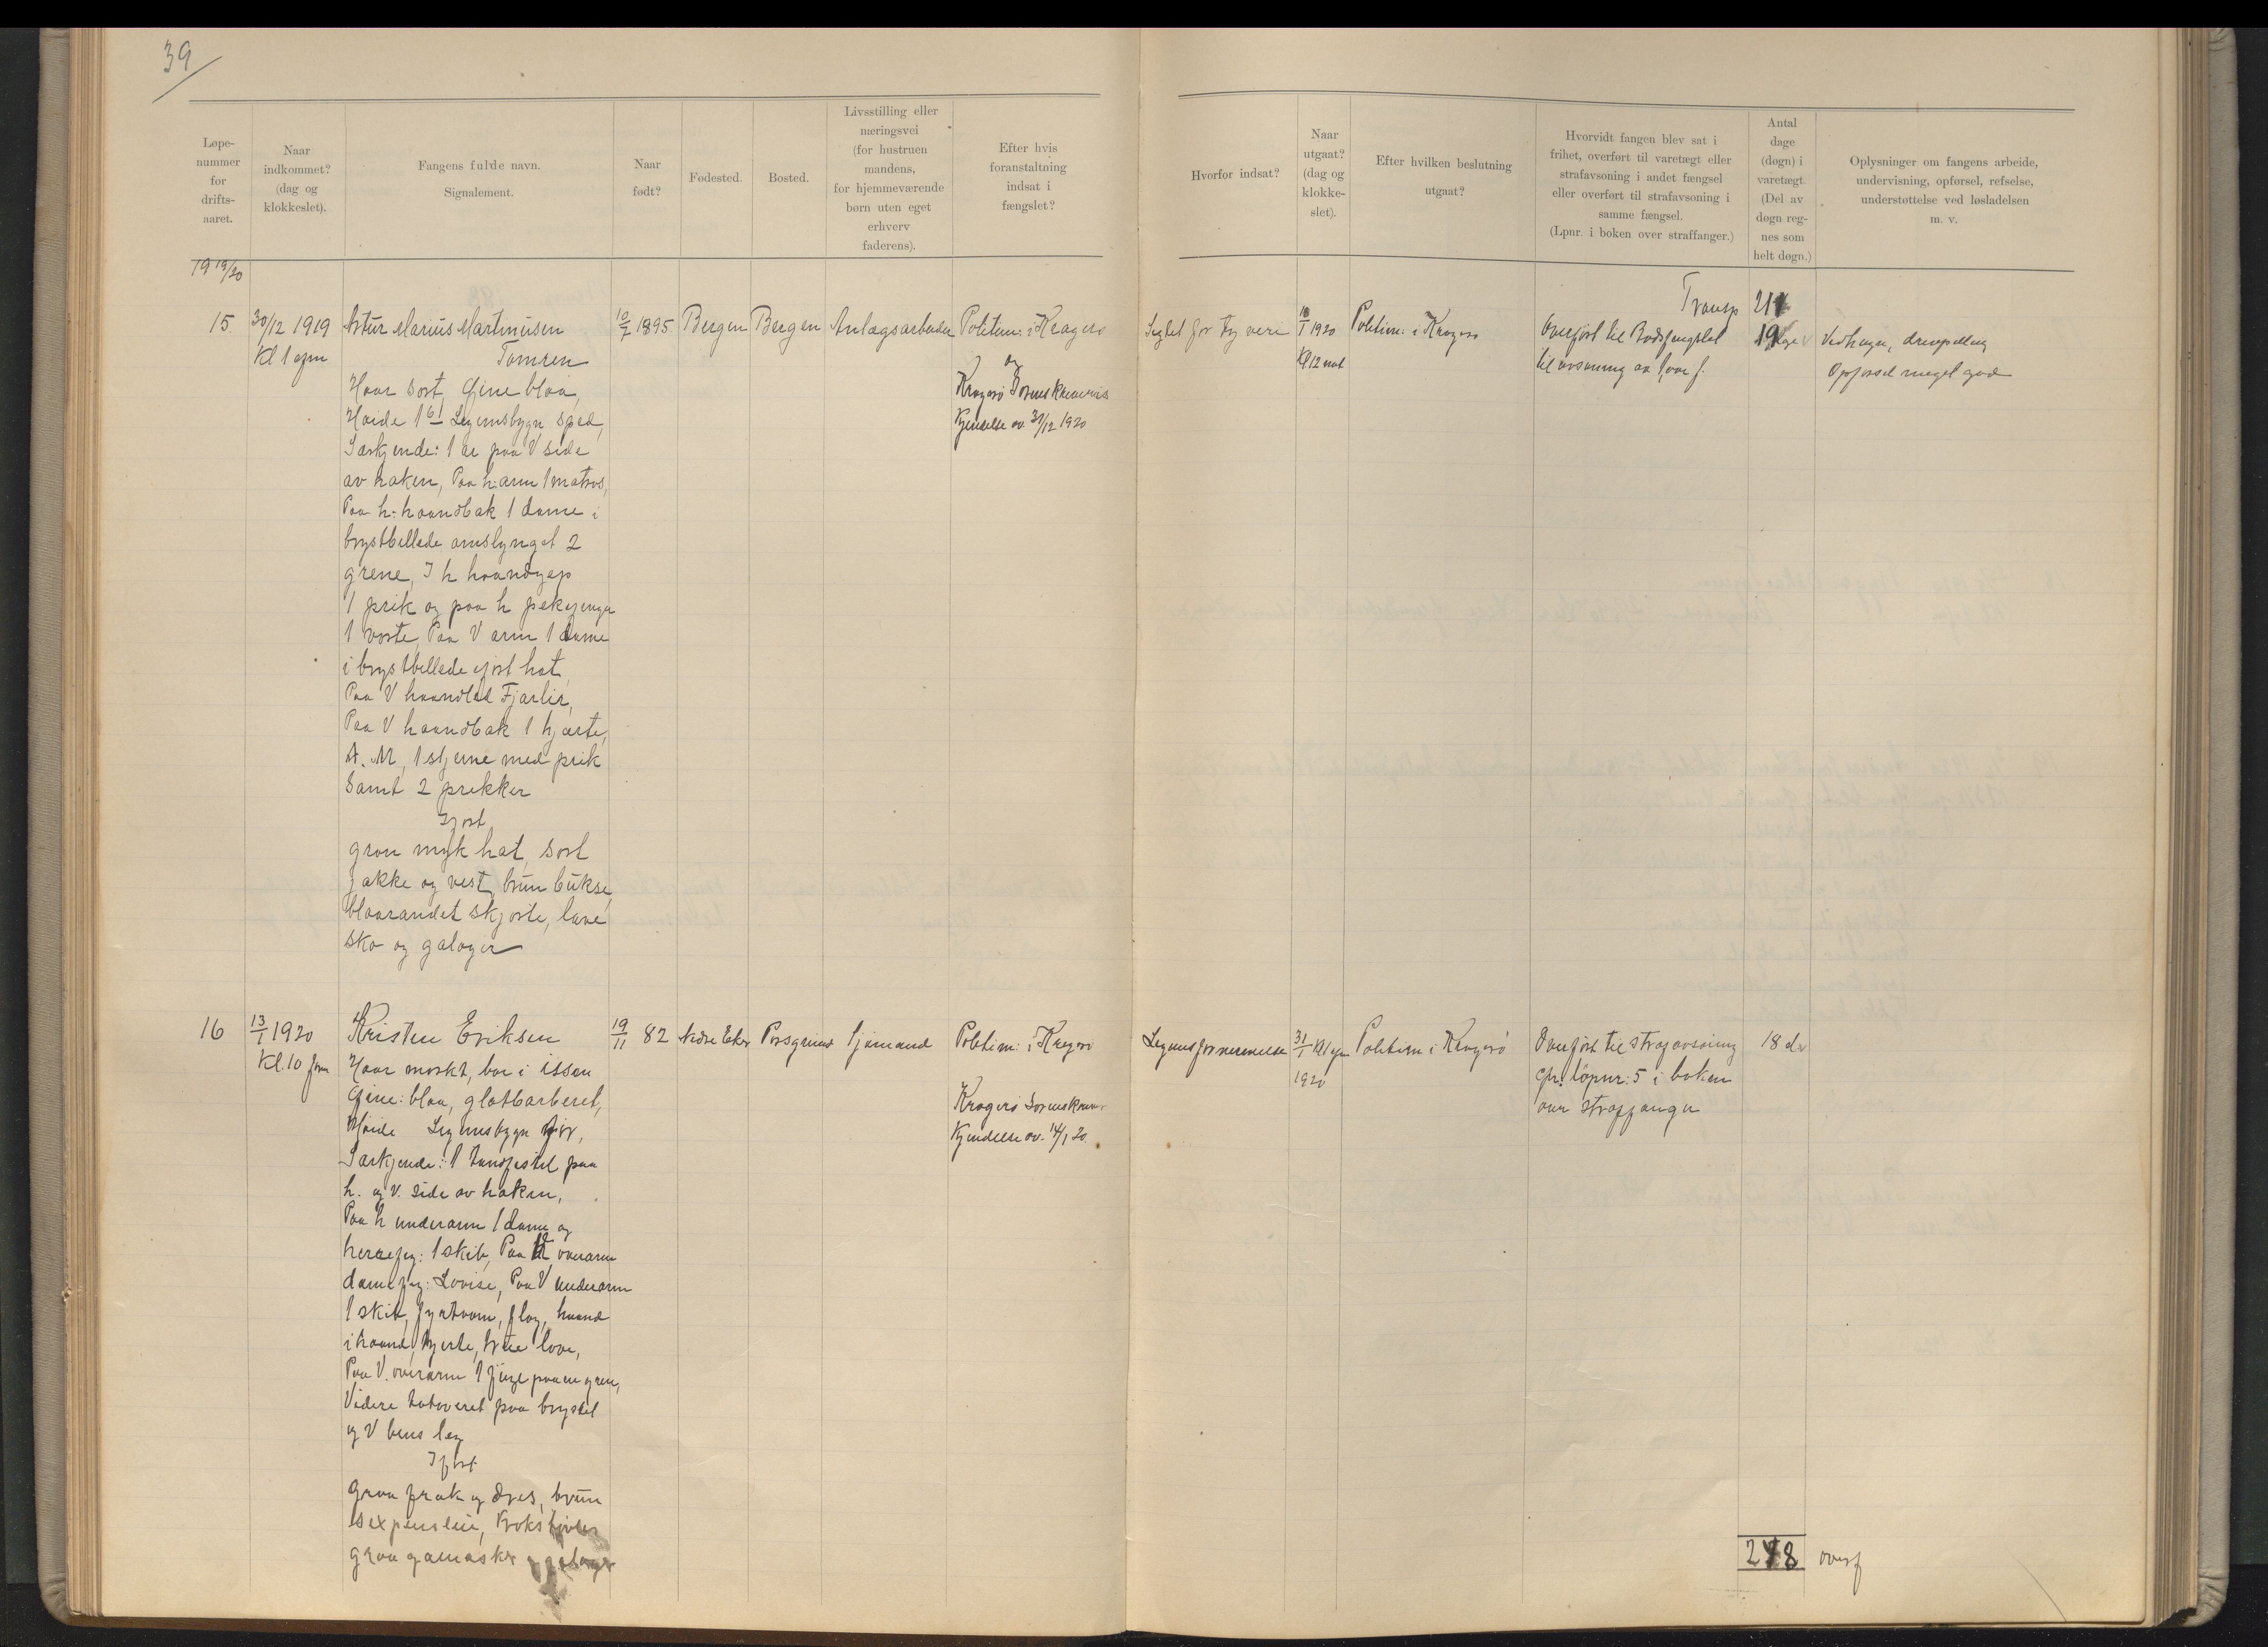 39
Løpe-
nummer
for
drifts-
aaret.
Naar
indkommet?
(dag og
klokkeslet).
Fangens fulde navn.
Signalement.
Naar
født?
Fødested.
Bosted.
Livsstilling eller
næringsvei
(for hustruen
mandens,
for hjemmeværende
børn uten eget
erhverv
faderens).
Efter hvis
foranstaltning
indsat i
fængslet?
Hvorfor indsat?
Naar
utgaat?
(dag og
klokke-
slet).
Efter hvilken beslutning
utgaat?
Hvorvidt fangen blev sat i
frihet, overført til varetægt eller
strafavsoning i andet fængsel
eller overført til strafavsoning i
samme fængsel.
(Lpnr. i boken over straffanger.)
Antal
dage
(døgn) i
varetægt.
(Del av
døgn reg-
nes som
helt døgn.)
Oplysninger om fangens arbeide,
undervisning, opførsel, refselse,
understøttelse ved løsladelsen
m. v.
1919/20
Transp
15.
30/12 1919
Kl 1 efm
Artur Marius Martinusen
Tomren
Haar sort, Øine blaa,
Høide 161 Legemsbygn spæd,
Særkjende: 1 ar paa V side
av haken, Paa h. arm 1 matros,
Paa h. haandbak 1 dame i
brystbillede omslynget 2
grene, I h haandgrep
1 prik og paa h pekefinger
1 vorte, Paa V arm 1 dame
i brystbillede iført hat,
Paa V haandled Fjærlir,
Paa V haandbak 1 hjærte,
A. M, 1 stjerne med prik
samt 2 prikker
Iført
grøn myk hat, sort
jakke og vest, brun bukse,
blaarandet skjorte, lave
sko og galoger
10/7 1895
Bergen
Bergen
Anlægsarbeider
Politim: i Kragerø
og
Kragerø Sorenskriveris
Kjendelse av 31/12 1920
Sigtet for tyveri
18/1 1920
Kl 12 nat
Politim: i Kragerø
Overført til Bodsfængslet
til avsoning av 1 aar f.
Vedhugu, drevpilling
Opførsel meget god
16
13/1 1920
Kl. 10 fm
Kristen Eriksen
Haar mørkt, bar i issen
Øine: blaa, glatbarberet,
Høide Legemsbygn
Særkjende: 1 tandfistel paa
h. og v. side av haken,
Paa h underarm 1 dame og
herrefig: 1 skib, Paa h overarm
damefig: Lovise, Paa V underarm
1 skib, fyrtaarn, flag, haand
i haand, hjerte, true love,
Paa V. overarm 1 fugl paa en gren,
Videre tatoveret paa brystet
og V bens leg
Iført
graa frak og dres, brun
sexpenslue, boksstøvler
graa gamasker og galoger
19/11 82
Nedre Eker
Porsgrund
Sjømand
Politim: i Kragerø
Kragerø Sorenskriver
Kjendelse av. 14/1 20.
Legemsfornærmelse
31/1 Kl 1 efm
1920
Politim i Kragerø
Overført til strafavsoning
cfr. løpnr: 5 i boken
over straffanger
18 d
248 overf